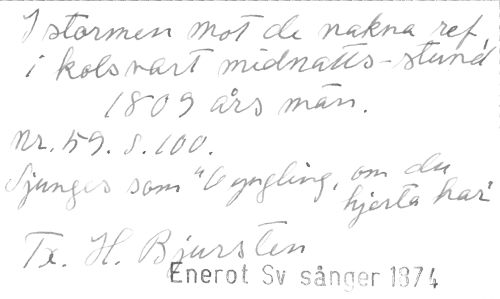 I stormen mot de nakna ref,
i kolsvart midnatts-stund
1809 års män.
Nr. 59. S. 100.
Sjunges som "O yngling, om du
hjerta har"
Tx. H. Bjursten
Enerot Sv sånger 1874